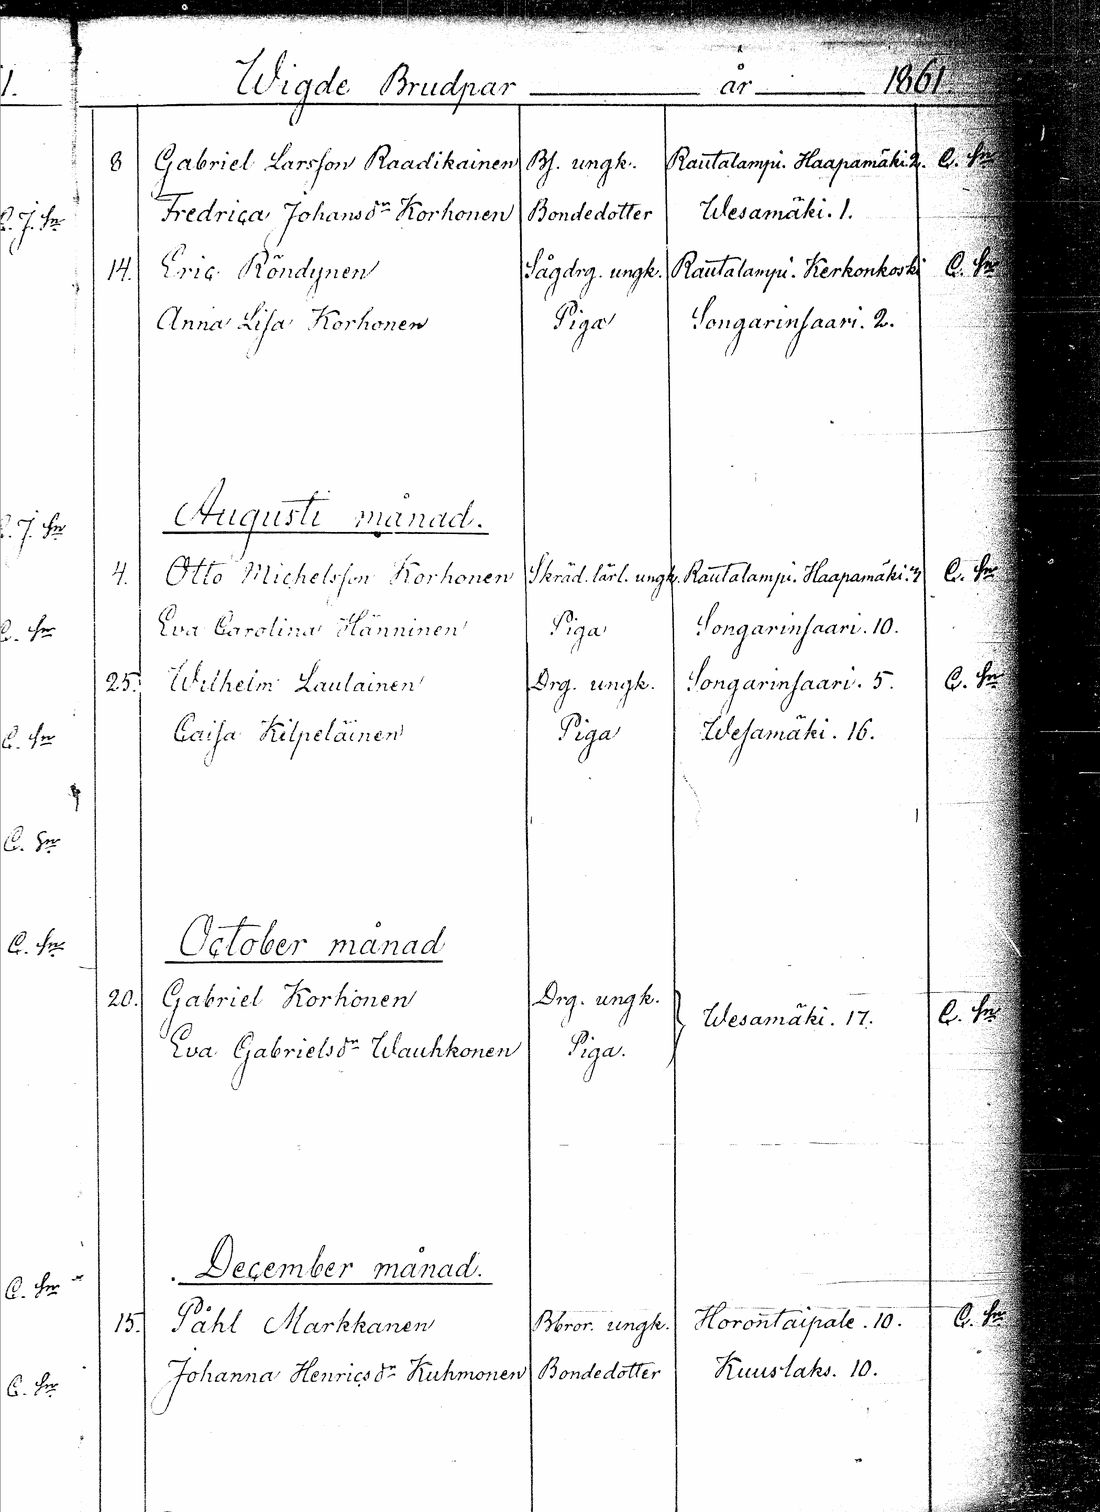 1.
Wigde Brudpar år 1861.
8 Gabriel Larsson Raadikainen Bs. ungk. Rautalampi. Haapamäki 2. C. Sr
C. J. Sr Fredrica Johansdr Korhonen Bondedotter Wesamäki. 1.
14. Eric Röndynen Sågdrg. ungk. Rautalampi. Kerkonkoski C. Sr
Anna Lisa Korhonen Piga Songarinsaari. 2.
C. J. Sr Augusti månad.
4. Otto Michelsson Korhonen Skräd. lärl. ungk. Rautalampi. Haapamäki. 3 C. Sr
C. Sr Eva Carolina Hänninen Piga Songarinsaari. 10.
25. Wilhelm Laulainen Drg. ungk. Songarinsaari. 5. C. Sr
C. Sr Caisa Kilpeläinen Piga Wesamäki. 16.
C. Sr
C. Sr October månad
20. Gabriel Korhonen Drg. ungk. Wesamäki. 17. C. Sr
Eva Gabrielsdr Wauhkonen Piga.
C. Sr December månad.
15. Påhl Markkanen Bbror. ungk. Horontaipale. 10. C. Sr
C. Sr Johanna Henricsdr Kuhmonen Bondedotter Kuuslaks. 10.